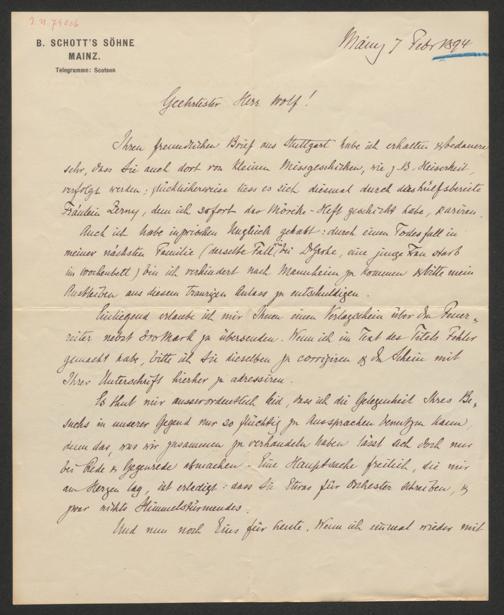 B. SCHOTT'S SÖHNE
MAINZ.
Telegramme: Scotson
Mainz 7 Febr 1894
Geehrtester Herr Wolf!
Ihren freundlichen Brief aus Stuttgart habe ich erhalten & bedauere
sehr, dass Sie auch dort von kleinen Missgeschicken, wie z.B. Heiserkeit,
verfolgt werden; glücklicherweise liess es sich diesmal durch das hülfsbereite
Fräulein Zerny, dem ich sofort das Mörike-Heft geschickt habe, pariren.
Auch ich habe inzwischen Unglück gehabt: durch einen Todesfall in
meiner nächsten Familie (derselbe Fall bei Dr Grohe, eine junge Frau starb
im Wochenbett) bin ich verhindert nach Mannheim zu kommen & bitte mein
Ausbleiben aus diesem traurigen Anlass zu entschuldigen.
Einliegend erlaube ich mir Ihnen einen Verlagsschein über den Feuer-
reiter nebst Mark zu übersenden. Wenn ich im Text des Titels Fehler
gemacht habe, bitte ich Sie dieselben zu corrigiren & den Schein mit
Ihrer Unterschrift hierher zu adressiren.
Es thut mir ausserordentlich leid, dass ich die Gelegenheit Ihres Be-
suchs in unserer Gegend nur so flüchtig zu Aussprachen benutzen kann,
denn das, was wir zusammen zu verhandeln haben lässt sich doch nur
bei Rede & Gegenrede abmachen. Eine Hauptsache freilich, die mir
am Herzen lag, ist erledigt: dass Sie Etwas für Orchester schreiben, &
zwar nichts Himmelstürmendes.
Und nun noch Eins für heute. Wenn ich einmal wieder mit